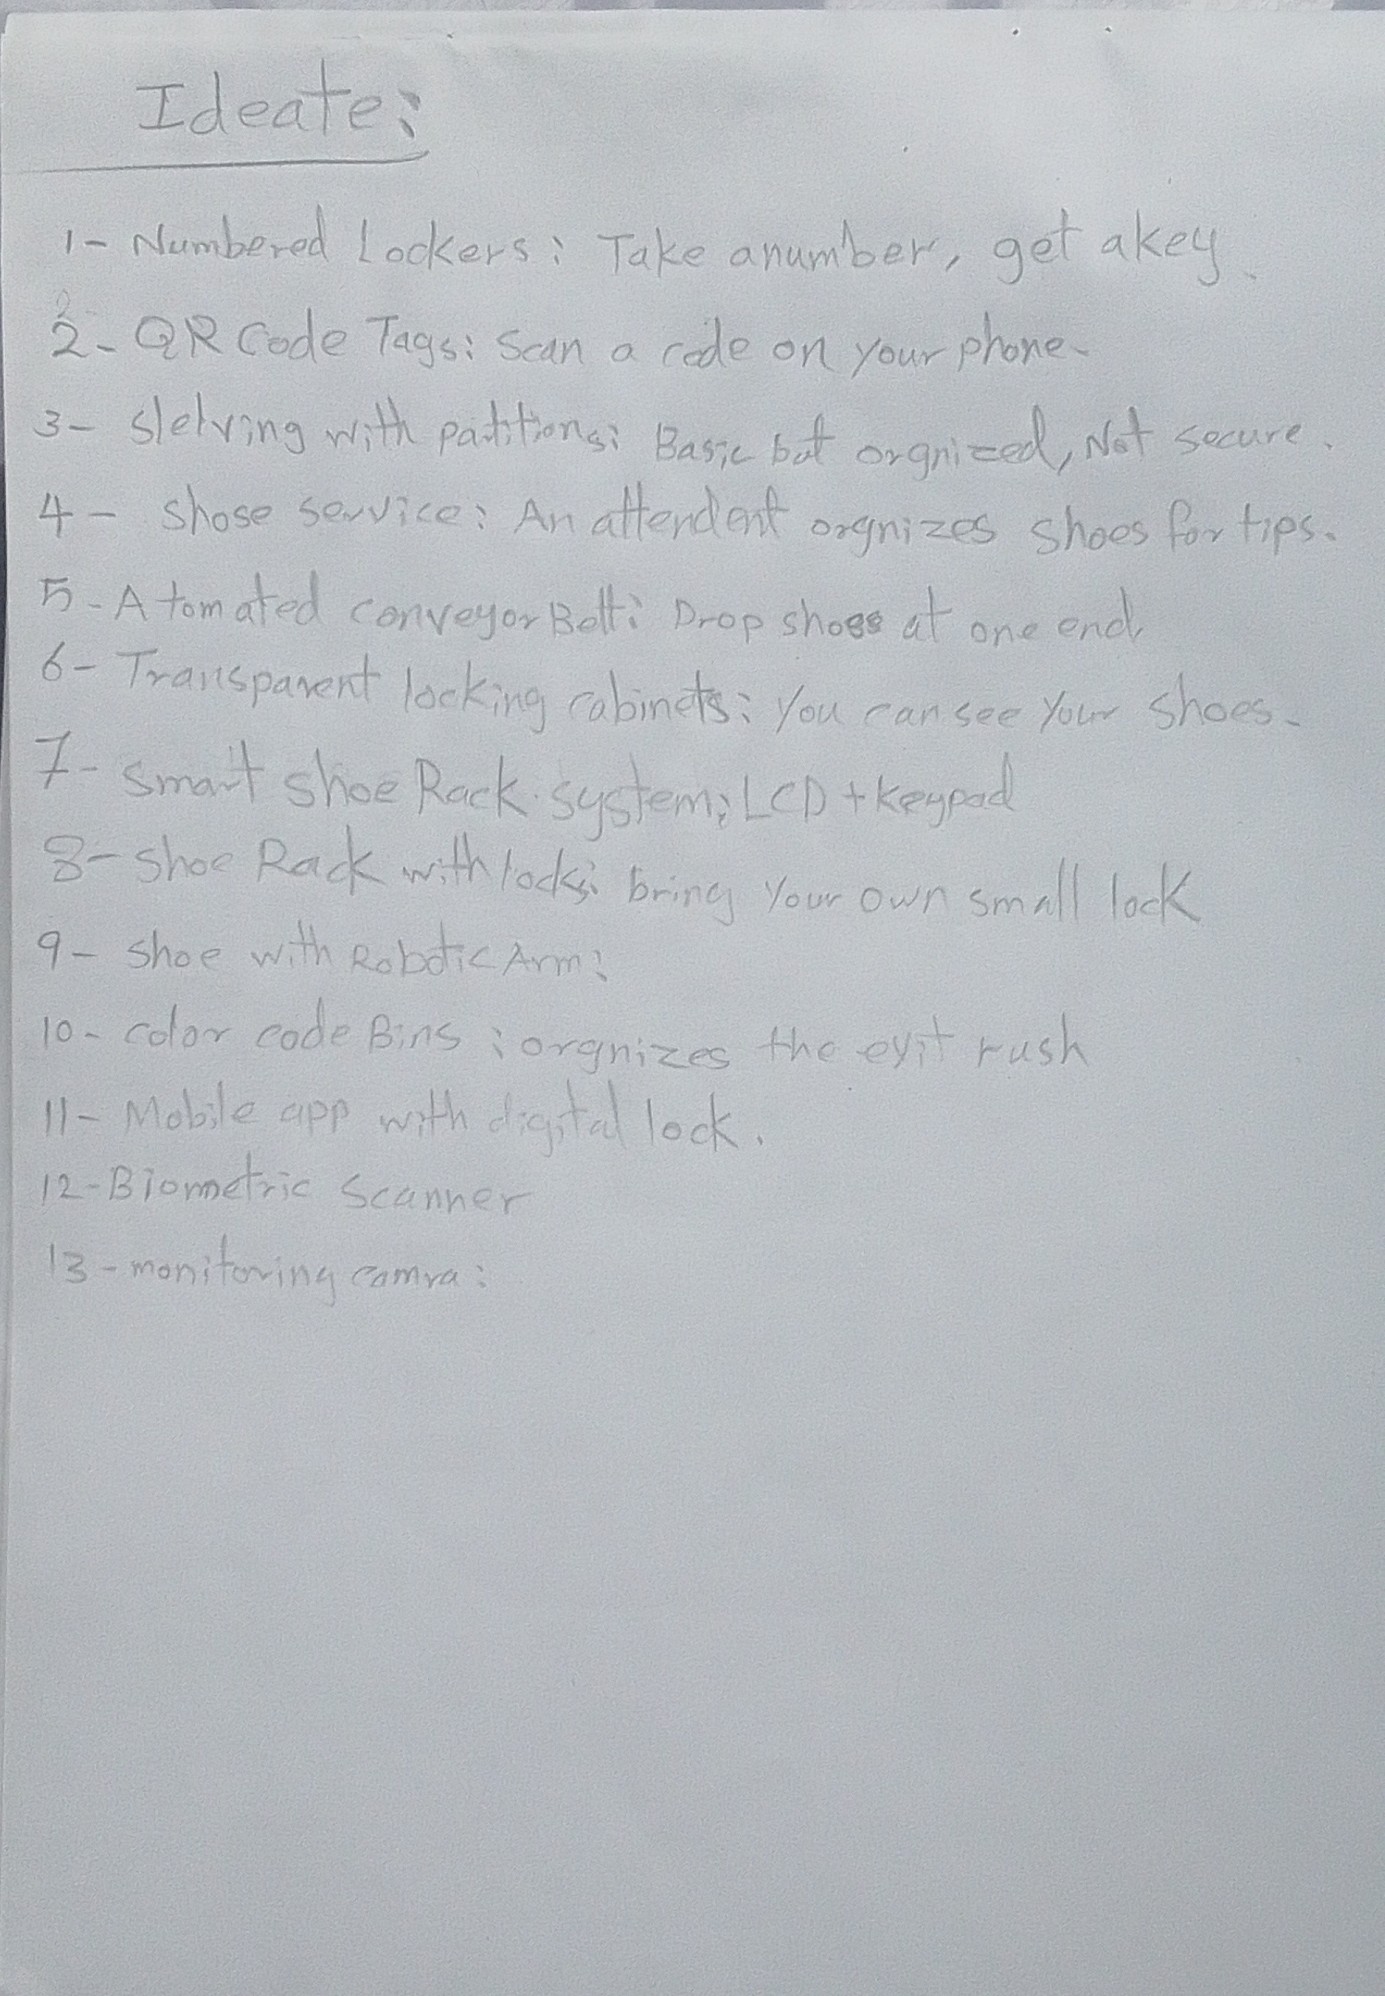 Ideate:
1- Numbered Lockers: Take anumber, get akey.
2- QR Code Tags: Scan a code on your phone.
3- Slelving with patitions: Basic but orgnized, Not secure.
4- shose service: An attendent orgnizes shoes for tips.
5- Atomated conveyor Belt: Drop shoes at one end,
6- Transparent locking cabinets: You can see Your shoes.
7- Smart shoe Rack system; LCD + keypad
8- shoe Rack with locks: bring Your own small lock
9- shoe with Robotic Arm:
10- color code Bins : orgnizes the exit rush
11- Mobile app with digital lock.
12- Biometric Scanner
13- monitoring camra: